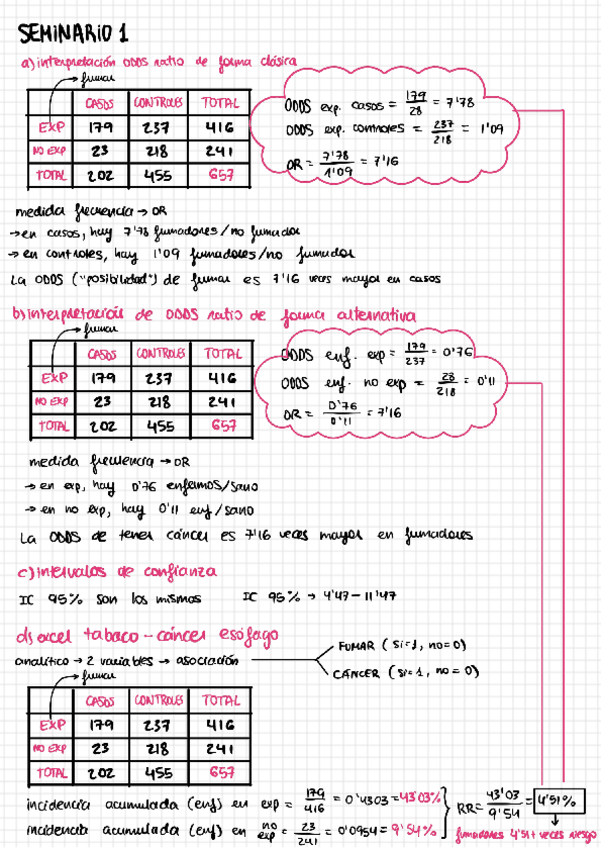 SEMINARIO 1
a) interpretación odds ratio de forma clásica
→ fumar
CASOS CONTROLES TOTAL
EXP 179 237 416
NO EXP 23 218 241
TOTAL 202 455 657
ODDS exp. casos = 179/28 = 7'78
ODDS exp. controles = 237/218 = 1'09
OR = 7'78/1'09 = 7'16
medida frecuencia → OR
→ en casos, hay 7'78 fumadores/no fumador
→ en controles, hay 1'09 fumadores/no fumador
La ODDS ("posibilidad") de fumar es 7'16 veces mayor en casos
b) interpretación de ODDS ratio de forma alternativa
→ fumar
CASOS CONTROLES TOTAL
EXP 179 237 416
NO EXP 23 218 241
TOTAL 202 455 657
ODDS enf. exp = 179/237 = 0'76
ODDS enf. no exp = 23/218 = 0'11
OR = 0'76/0'11 = 7'16
medida frecuencia → OR
→ en exp, hay 0'76 enfermos/sano
→ en no exp, hay 0'11 enf/sano
La ODDS de tener cáncer es 7'16 veces mayor en fumadores
c) intervalos de confianza
IC 95% son los mismos IC 95% → 4'47 - 11'47
d) excel tabaco - cáncer esófago
analítico → 2 variables → asociación
FUMAR (sí=1, no=0)
CÁNCER (sí=1, no=0)
→ fumar
CASOS CONTROLES TOTAL
EXP 179 237 416
NO EXP 23 218 241
TOTAL 202 455 657
incidencia acumulada (enf) en exp = 179/416 = 0'4303 = 43'03%
incidencia acumulada (enf) en no exp = 23/241 = 0'0954 = 9'54%
RR = 43'03/9'54 = 4'51%
fumadores 4'51 veces riesgo